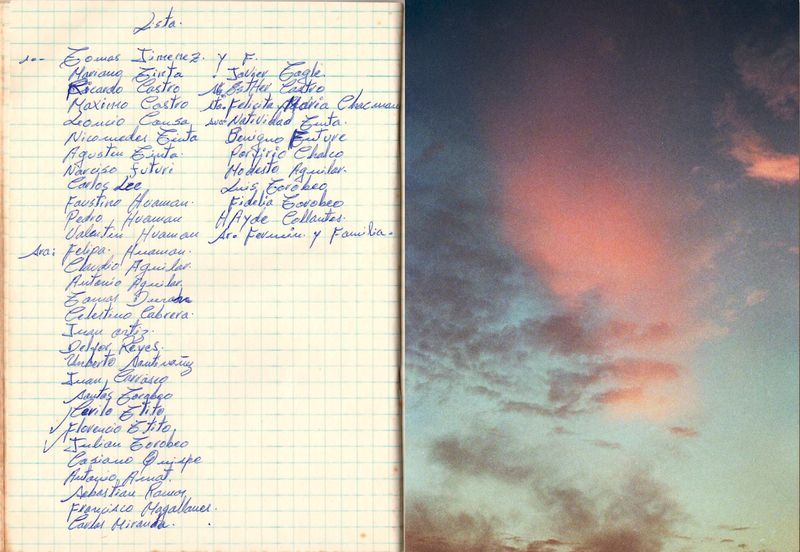 Lista.
Tomas Jimenez. y F.
Mariano Tinta
Ricardo Castro
Maximo Castro
Leoncio Causa
Nicomedes Tinta
Agustin Tinta.
Narciso Futuri
Carlos Lee
Faustino Huaman.
Pedro Huaman
Valentin Huaman
Sra: Felipa. Huaman.
Claudio Aguilar.
Antonio Aguilar.
Tomas
Celestino Cabrera.
Juan Ortiz.
Reyes.
Unberto
Juan Carrasco
Santos Torobeo
Cirilo Ttito
Florencio Ttito
Julian Torobeo
Casiano Quispe
Antonio Amat.
Sebastian Ramos
Francisco Magallanes.
Carlos Miranda.
Javier Tagle.
Esther Castro
Sta: Felicita Maria Chacman
Sra: Natividad Tinta.
Benigno
Porfirio Chalco
Modesto Aguilar.
Luis Torobeo
Fidelia Torobeo
HAyde Collantes.
Sr. Fermin. y Familia.